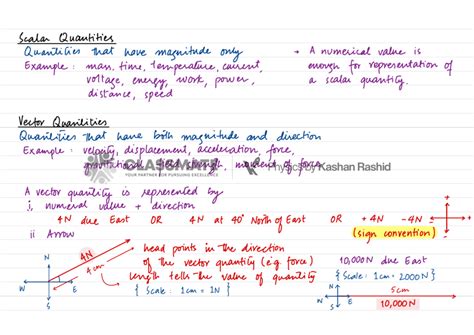 Scalar Quantities
Quantities that have magnitude only
Example : mass, time, temperature, current,
voltage, energy, work, power,
distance, speed
→ A numerical value is
enough for representation of
a scalar quantity.
Vector Quantities
Quantities that have both magnitude and direction
Example : velocity, displacement, acceleration, force,
gravitational field strength, moment of force
CLASSMATE
YOUR PARTNER FOR PURSUING EXCELLENCE
Physics By Kashan Rashid
A vector quantity is represented by
i, numeral value + direction
4N due East OR 4N at 40° North of East OR +4N -4N
(sign convention)
ii Arrow
head points in the direction
of the vector quantity (e.g force)
length tells the value of quantity
{ Scale : 1cm = 1N }
4N
4cm
N
W E
S
10,000N due East
{ Scale : 1cm = 2000N }
N
W E
S
5cm
10,000N